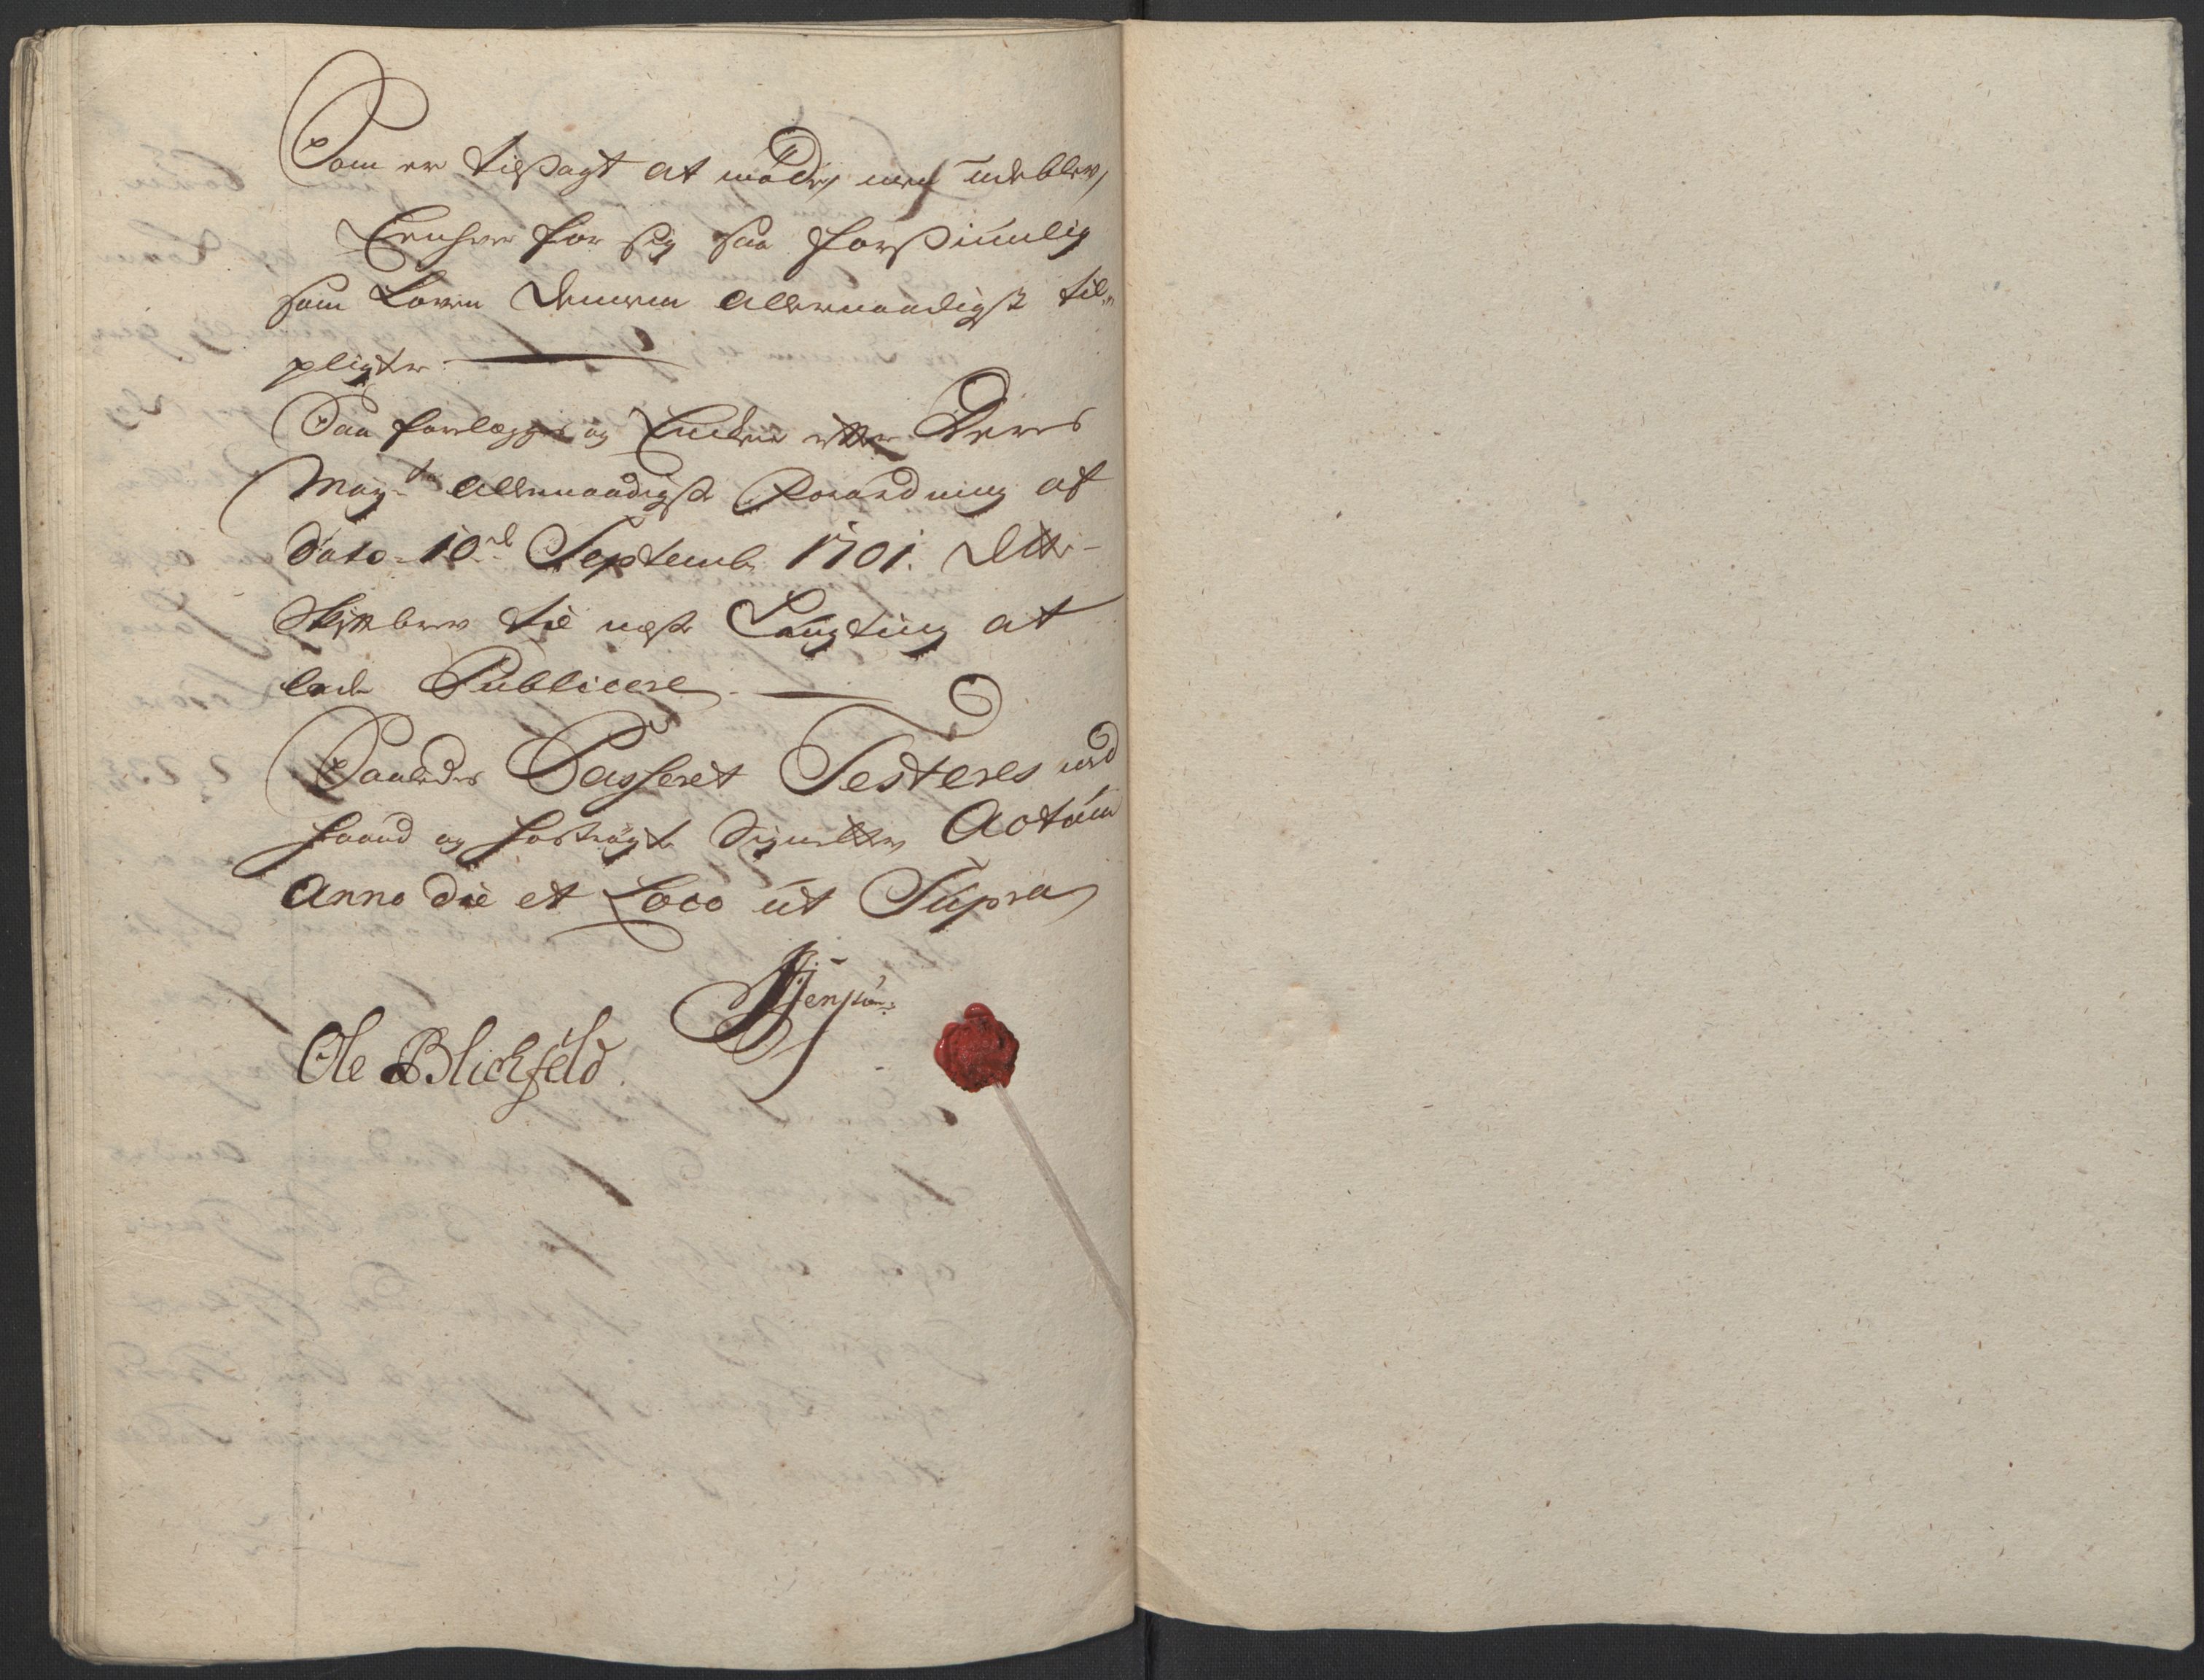 Som er tilsagt at møde, men udeblev,
Eenhver for sig saa forsiunlig
som Loven dennem allernaadigst til„
pligter
Saa forelægges og Enden efter Deris
Mayts allernaadigste Forordning af
dato 10de Septemb 1701. dette
Skiftebrev til neste Laugting at
lade Publicere
Saaledes Passeret Testeres med
haand og hoströgt Signetter Actum
Anno die et Loco ut Supra
Jensön
Ole Blichfeld